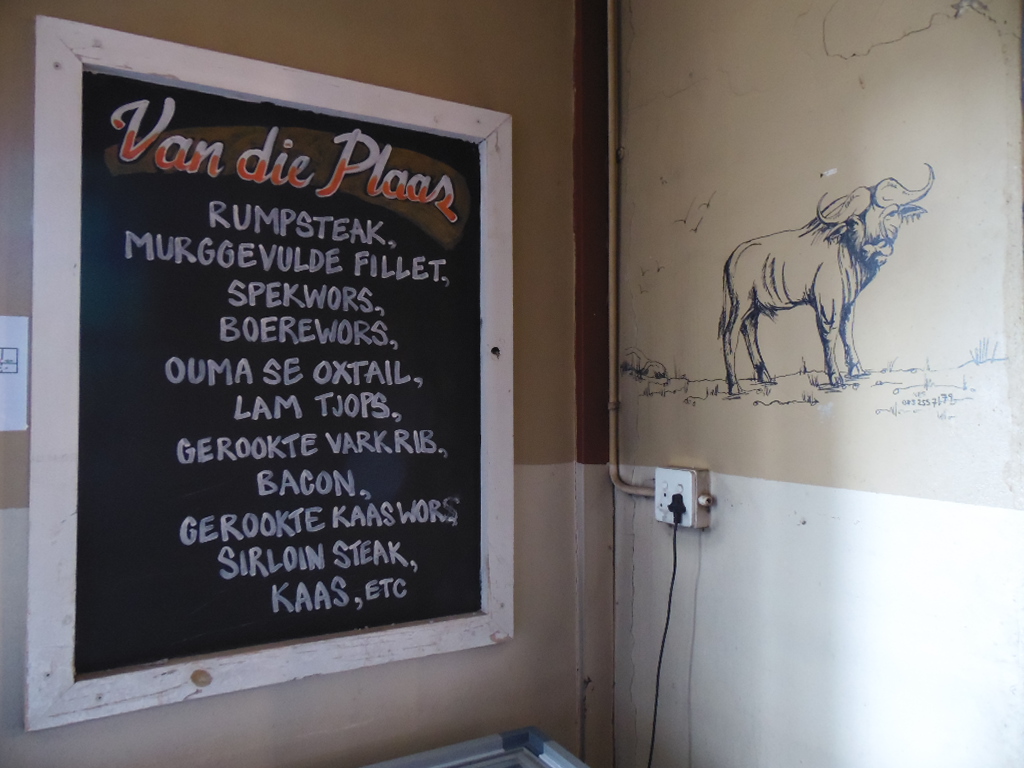 Van die Plaas
RUMPSTEAK,
MURGGEVULDE FILLET,
SPEKWORS,
BOEREWORS,
OUMA SE OXTAIL,
LAM TJOPS,
GEROOKTE VARKRIB,
BACON,
GEROOKTE KAASWORS
SIRLOIN STEAK,
KAAS, ETC